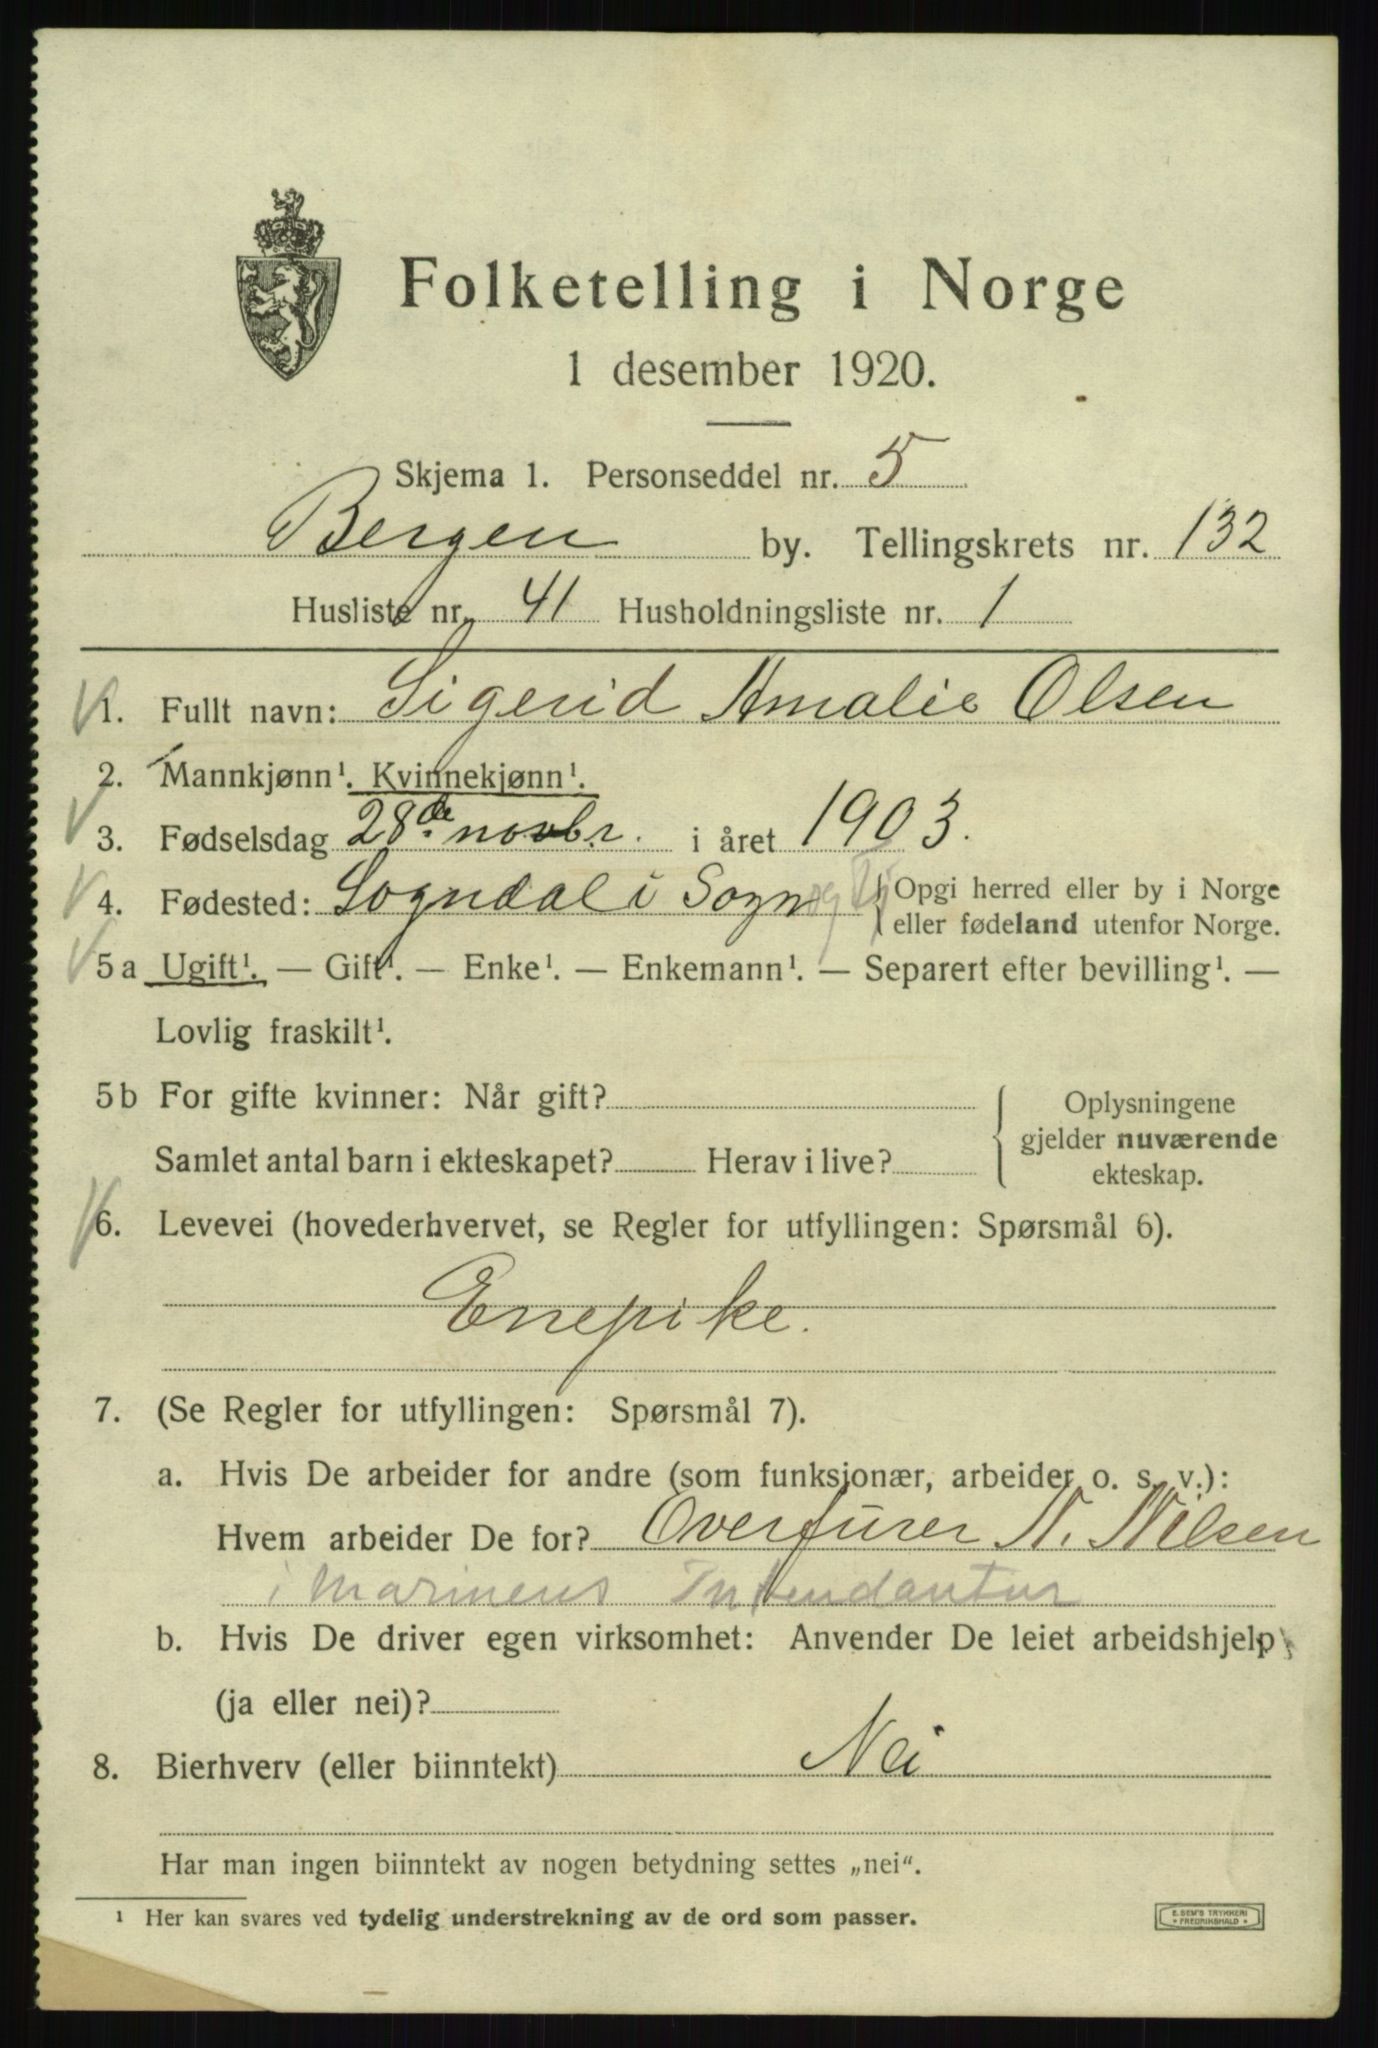 Folketelling i Norge
1 desember 1920.
Skjema 1. Personseddel nr. 5
Bergen by. Tellingskrets nr. 132
Husliste nr. 41 Husholdningsliste nr. 1
1. Fullt navn: Sigerid Amalie Olsen
2. Mannkjønn¹. Kvinnekjønn¹.
3. Fødselsdag 28de novbr. i året 1903.
4. Fødested: Sogndal i Sogn og Fj { Opgi herred eller by i Norge
eller fødeland utenfor Norge.
5 a Ugift¹. — Gift¹. — Enke¹. — Enkemann¹. — Separert efter bevilling¹. —
Lovlig fraskilt¹.
5 b For gifte kvinner: Når gift? { Oplysningene
gjelder nuværende
Samlet antal barn i ekteskapet? Herav i live?
ekteskap.
6. Levevei (hovederhvervet, se Regler for utfyllingen: Spørsmål 6).
Enepike.
7. (Se Regler for utfyllingen: Spørsmål 7).
a. Hvis De arbeider for andre (som funksjonær, arbeider o. s. v.):
Hvem arbeider De for? Overfurer N. Nilsen
i Marinens Intendantur
b. Hvis De driver egen virksomhet: Anvender De leiet arbeidshjelp
(ja eller nei)?
8. Bierhverv (eller biinntekt) Nei
Har man ingen biinntekt av nogen betydning settes „nei“.
¹ Her kan svares ved tydelig understrekning av de ord som passer.
E. SEM'S TRYKKERI
FREDRIKSHALD